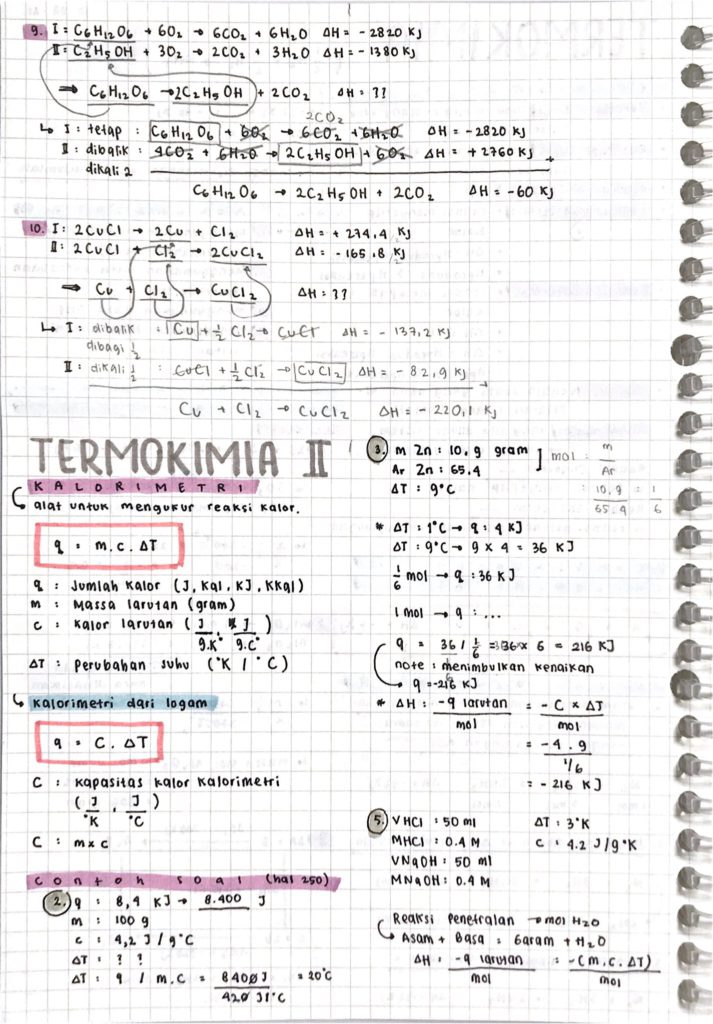 9. I : C6H12O6 + 6O2 → 6CO2 + 6H2O ΔH = - 2820 KJ
II : C2H5OH + 3O2 → 2CO2 + 3H2O ΔH = - 1380 KJ
⇒ C6H12O6 → 2C2H5OH + 2CO2 ΔH = ??
2CO2
↳ I : tetap : C6H12O6 + 6O2 → 6CO2 + 6H2O ΔH = - 2820 KJ
II : dibalik : 4CO2 + 6H2O → 2C2H5OH + 6O2 ΔH = + 2760 KJ +
dikali 2
C6H12O6 → 2C2H5OH + 2CO2 ΔH = -60 KJ
10. I : 2CuCl → 2Cu + Cl2 ΔH = + 274,4 KJ
II : 2CuCl + Cl2 → 2CuCl2 ΔH = - 165,8 KJ
⇒ Cu + Cl2 → CuCl2 ΔH = ??
↳ I : dibalik : Cu + 1/2 Cl2 → CuCl ΔH = - 137,2 KJ
dibagi 1/2
II : dikali 1/2 : CuCl + 1/2 Cl2 → CuCl2 ΔH = - 82,9 KJ +
Cu + Cl2 → CuCl2 ΔH = - 220,1 KJ
TERMOKIMIA II
KALORIMETRI
alat untuk mengukur reaksi kalor.
q = m.c. ΔT
q : Jumlah kalor (J, Kal, KJ, KKal)
m : Massa larutan (gram)
c : kalor larutan (J/g.K°, J/g.C°)
ΔT : perubahan suhu (°K / °C)
↳ Kalorimetri dari logam
q = C. ΔT
C : Kapasitas kalor kalorimetri
(J/°K , J/°C)
C : m x c
contoh soal (hal 250)
2. q : 8,4 KJ → 8.400 J
m : 100 g
c : 4,2 J / g°C
ΔT : ? ?
ΔT : q / m.C = 8400 J / 420 J/°C = 20°C
3. m Zn : 10,9 gram ] mol : m / Ar
Ar Zn : 65.4
ΔT : 9°C : 10,9 / 65.4 = 1 / 6
* ΔT : 1°C → q : 4 KJ
ΔT : 9°C → 9 x 4 = 36 KJ
1/6 mol → q : 36 KJ
1 mol → q : ...
q = 36 / 1/6 = 36 x 6 = 216 KJ
note : menimbulkan kenaikan
→ q = -216 KJ
* ΔH : -q larutan / mol = - C x ΔT / mol
= -4 . 9 / 1/6
= - 216 KJ
5. VHCl : 50 ml ΔT : 3°K
MHCl : 0.4 M c : 4.2 J/g°K
VNaOH : 50 ml
MNaOH : 0.4 M
Reaksi Penetralan → mol H2O
↳ Asam + Basa = Garam + H2O
ΔH = -q larutan / mol = -(m.c. ΔT) / mol